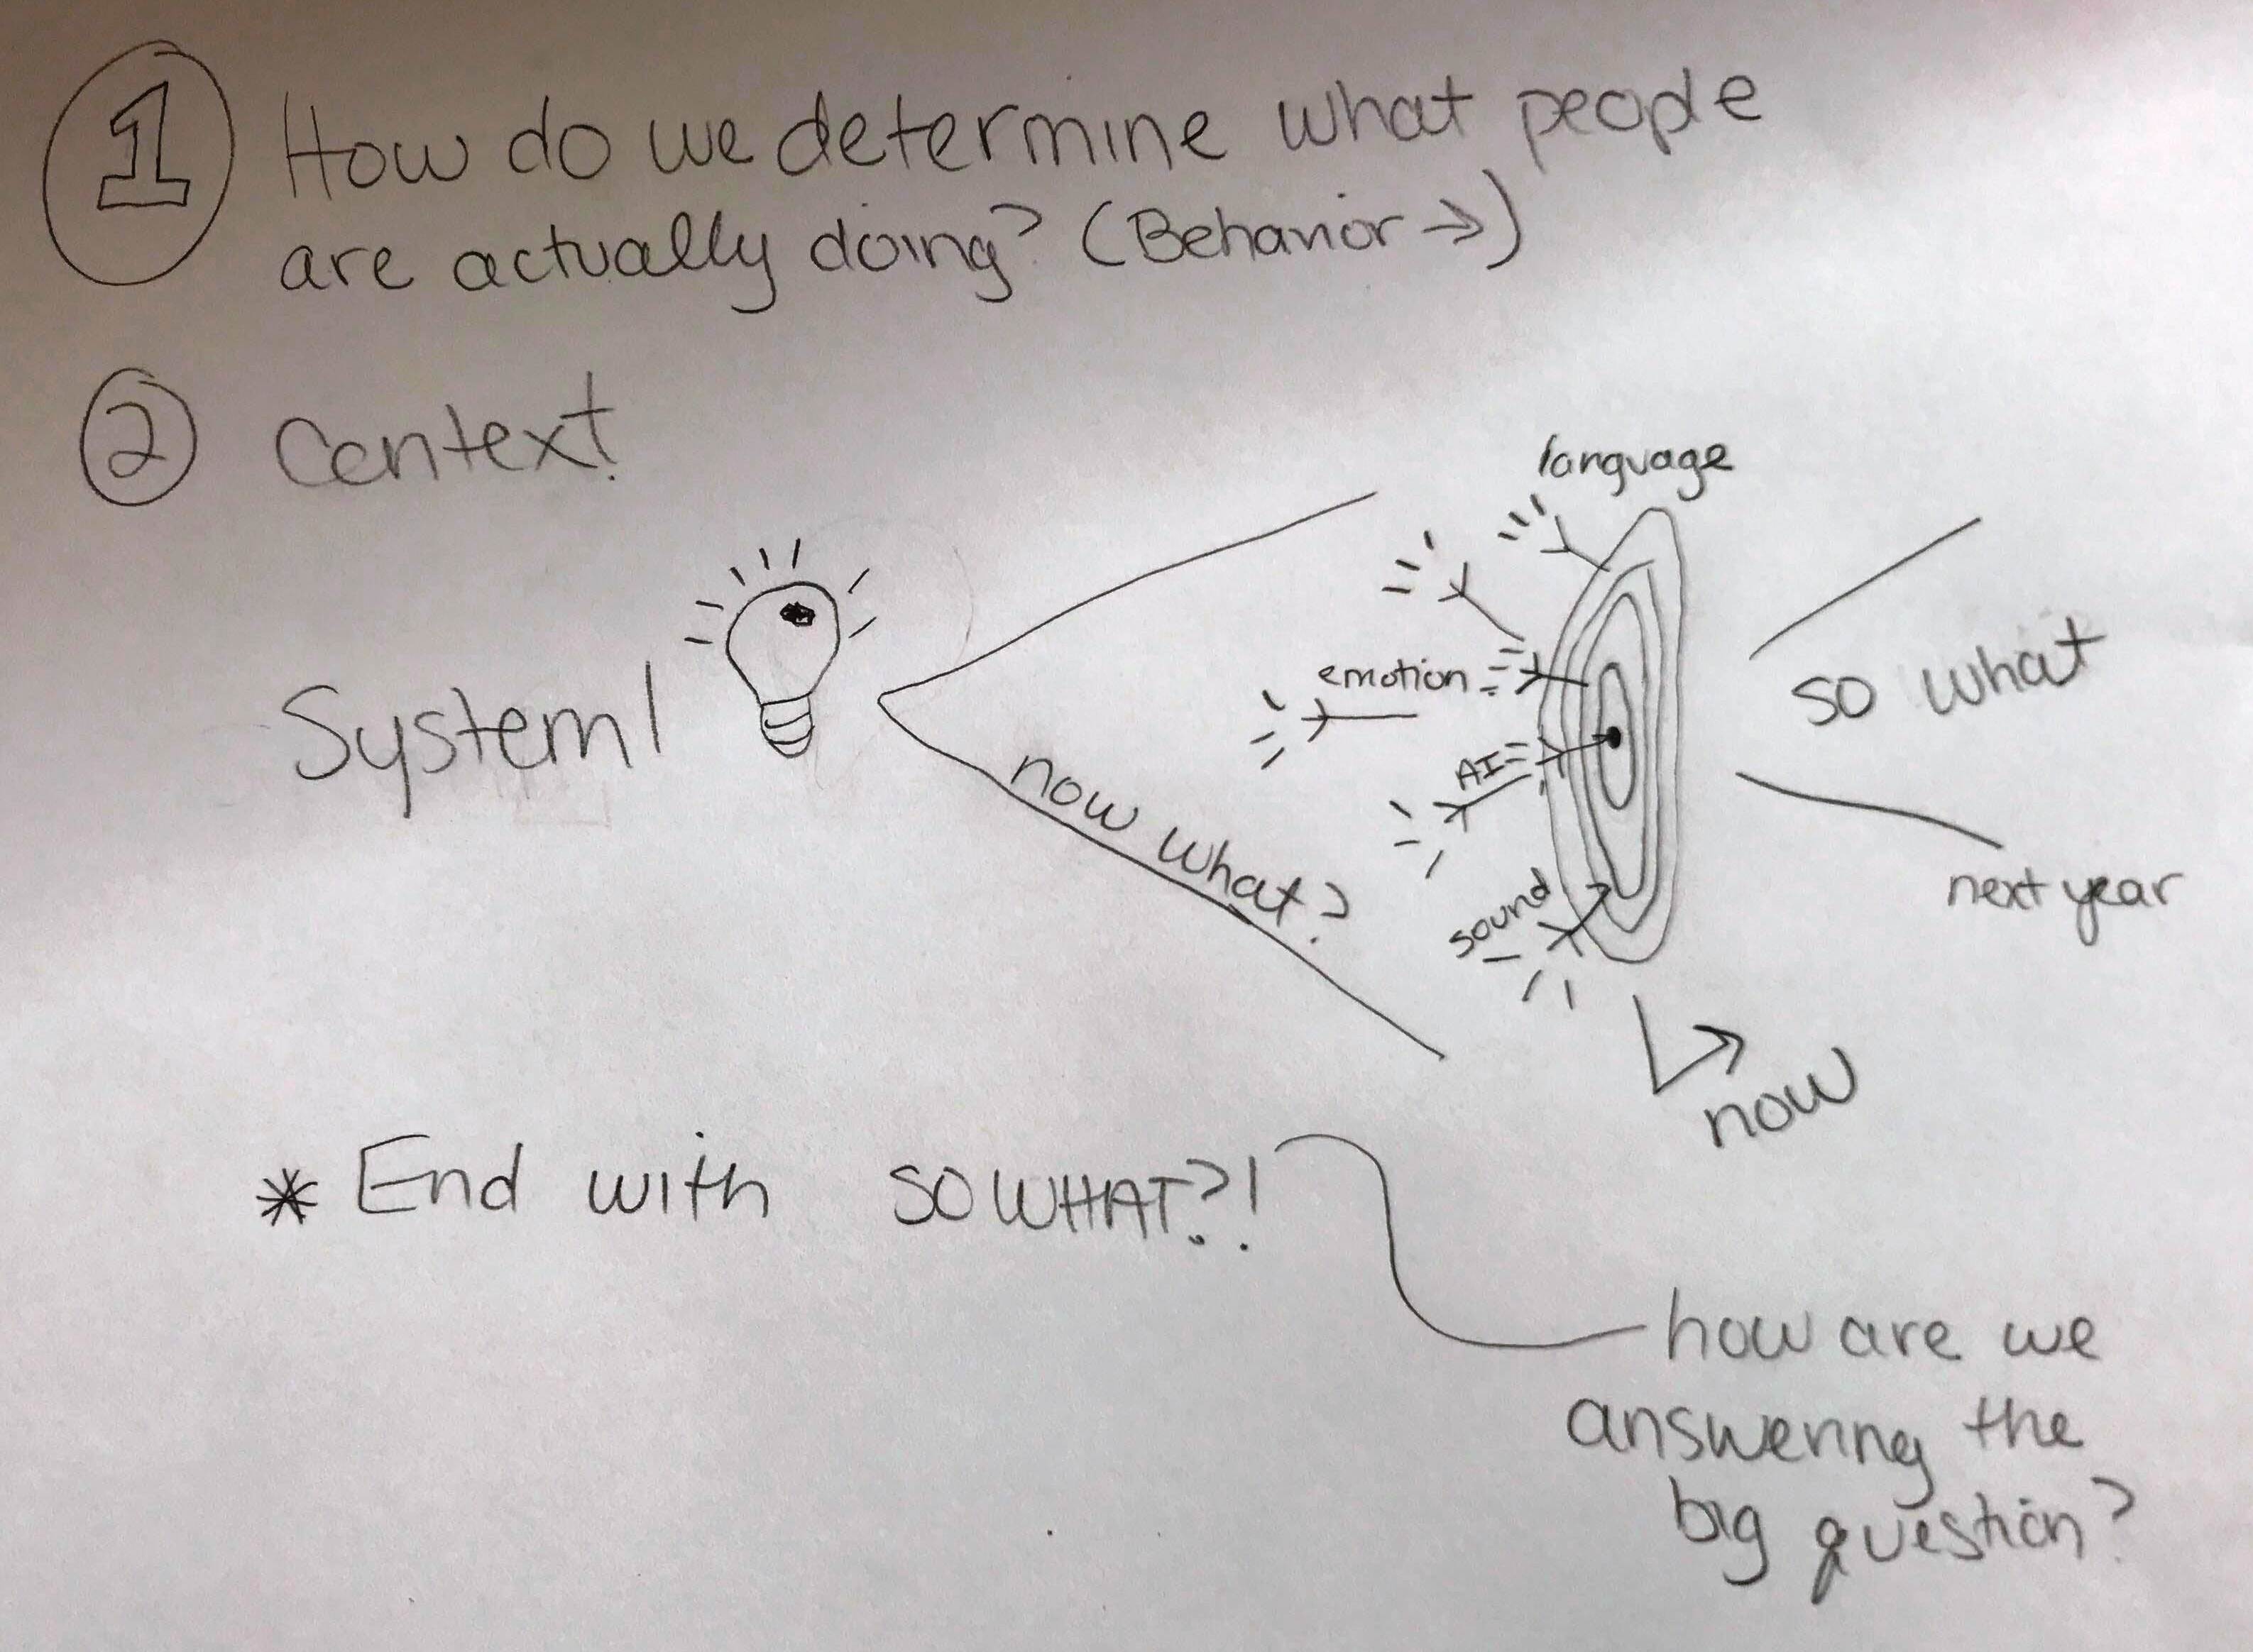 1 How do we determine what people
are actually doing? (Behavior →)
2 Context
language
emotion
AI
sound
System!
now what?
so what
next year
now
* End with SO WHAT?!
how are we
answering the
big question?